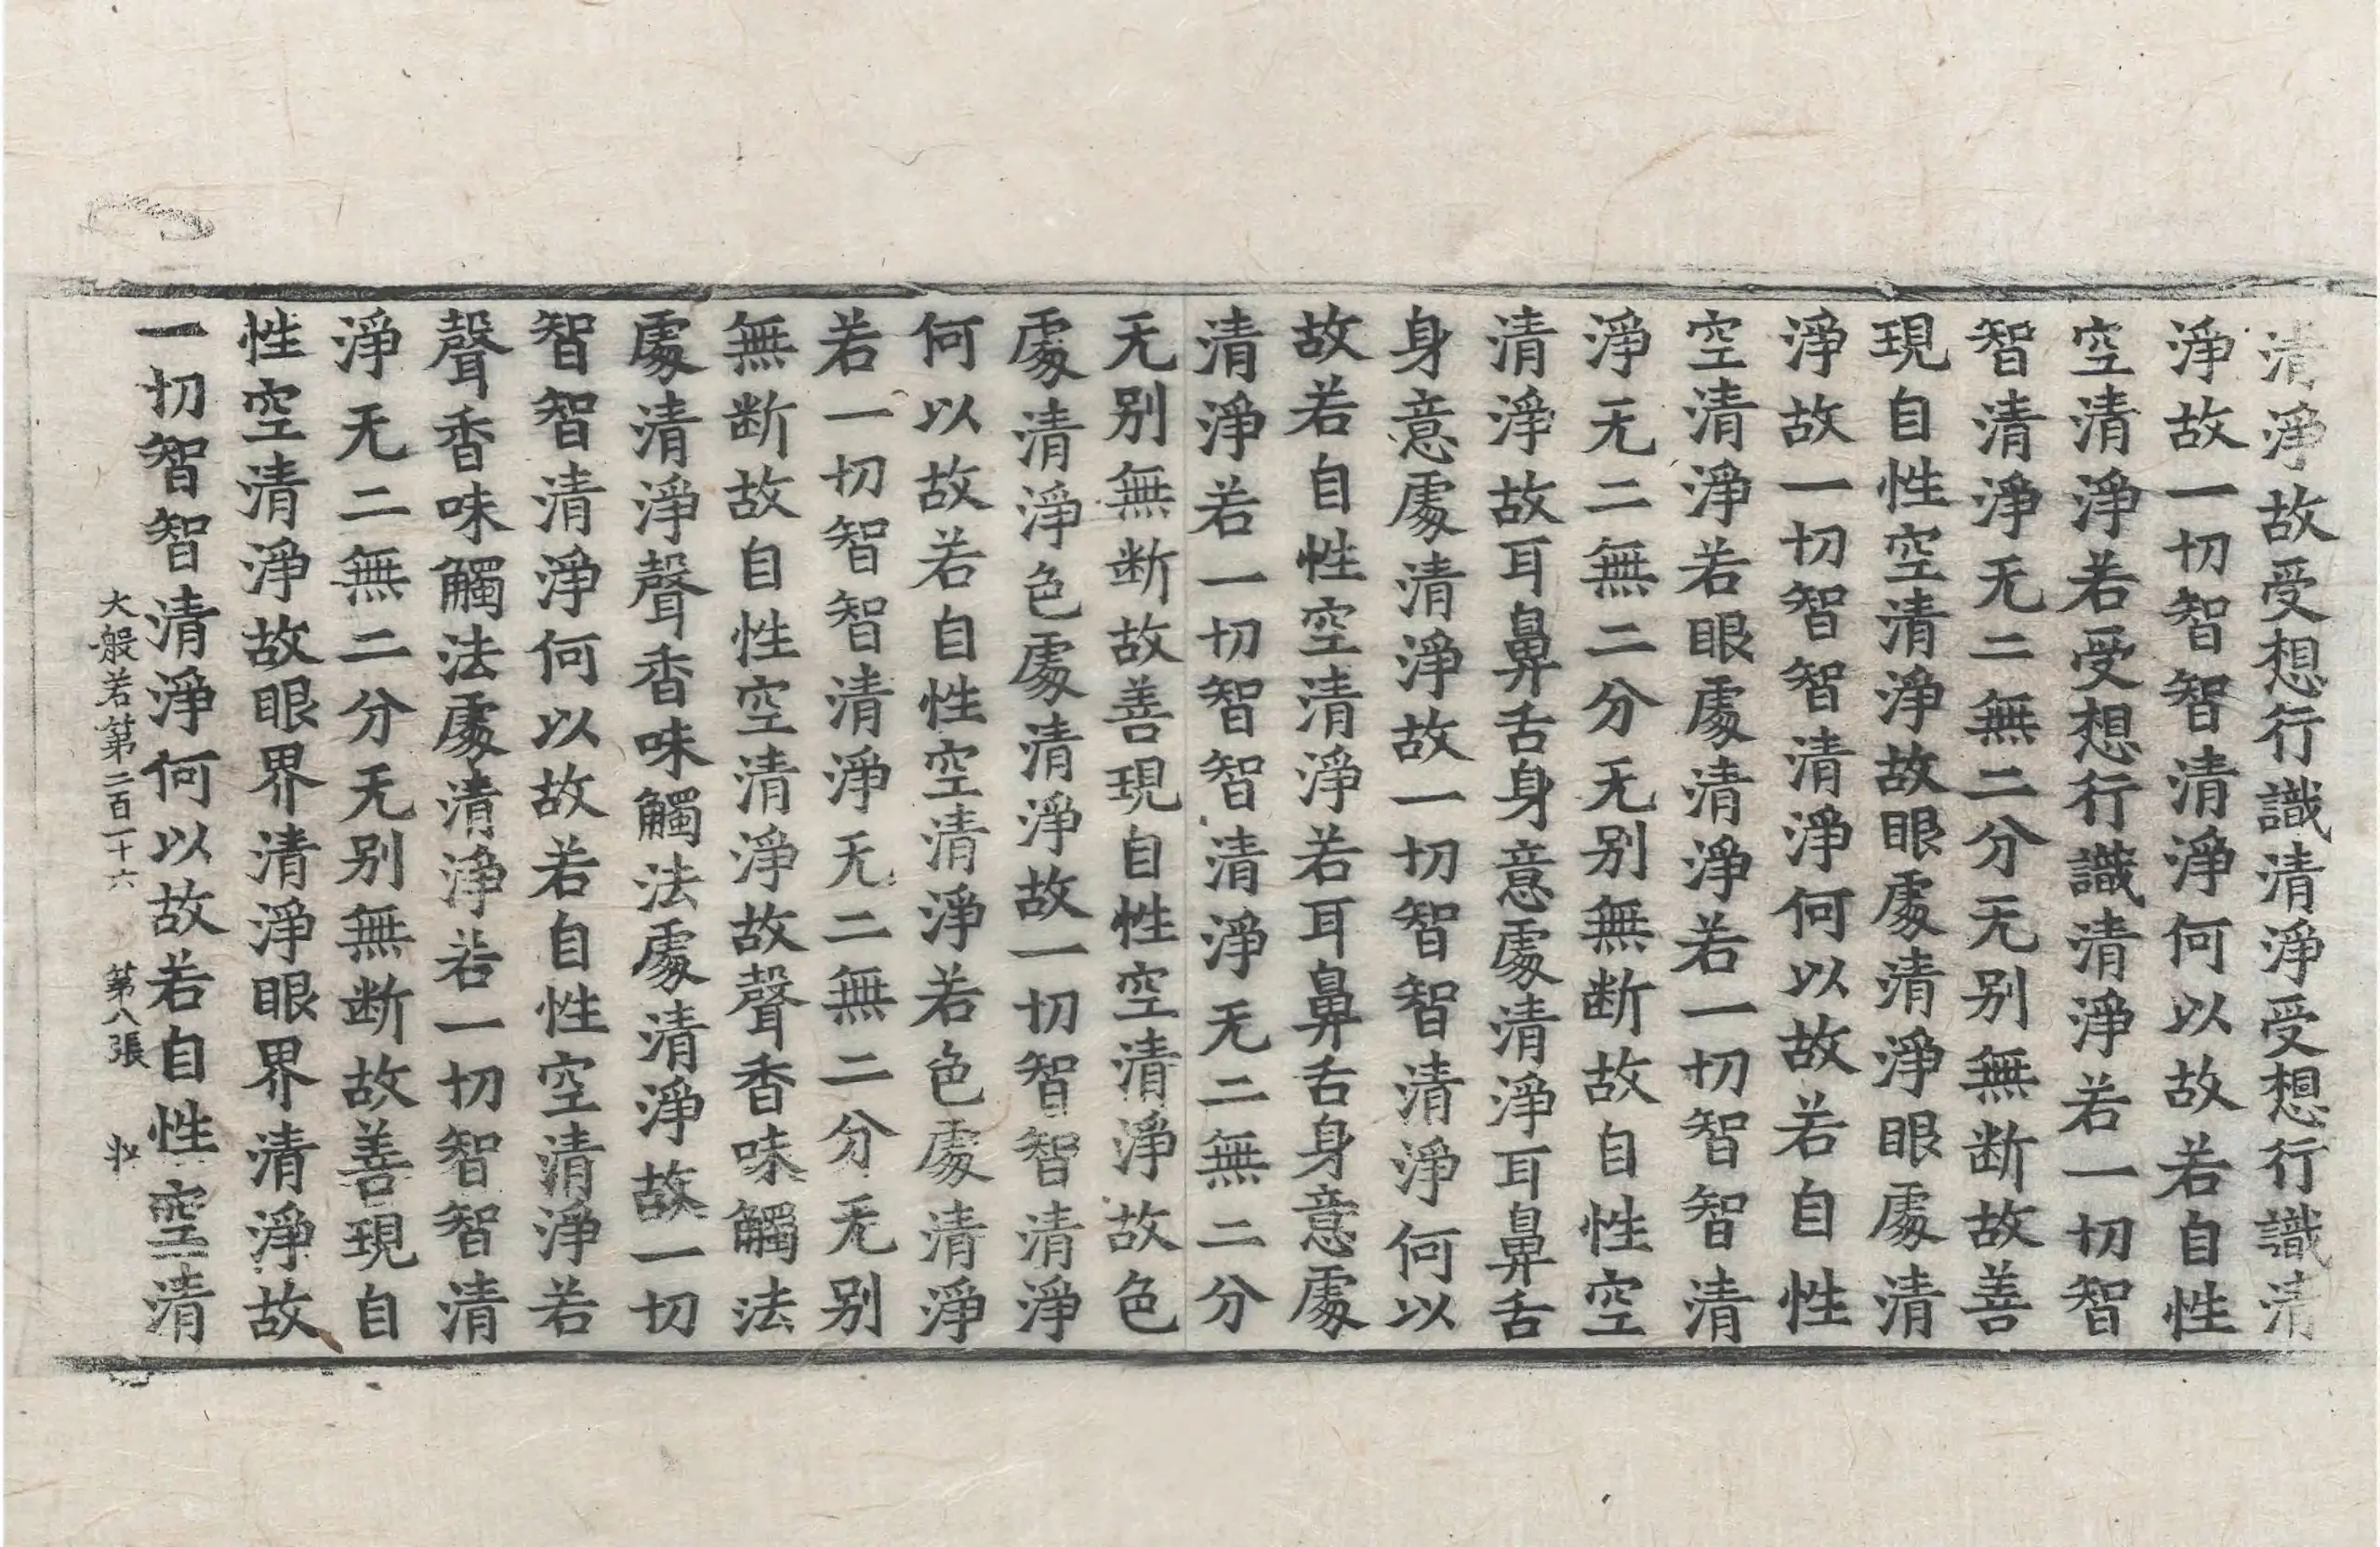 清淨故受想行識清淨受想行識清
淨故一切智智清淨何以故若自性
空清淨若受想行識清淨若一切智
智清淨无二無二分无别無断故善
現自性空清淨故眼處清淨眼處清
淨故一切智智清淨何以故若自性
空清淨若眼處清淨若一切智智清
淨无二無二分无别無断故自性空
清淨故耳鼻舌身意處清淨耳鼻舌
身意處清淨故一切智智清淨何以
故若自性空清淨若耳鼻舌身意處
清淨若一切智智清淨无二無二分
无别無断故善現自性空清淨故色
處清淨色處清淨故一切智智清淨
何以故若自性空清淨若色處清淨
若一切智智清淨无二無二分无别
無断故自性空清淨故聲香味觸法
處清淨聲香味觸法處清淨故一切
智智清淨何以故若自性空清淨若
聲香味觸法處清淨若一切智智清
淨无二無二分无别無断故善現自
性空清淨故眼界清淨眼界清淨故
一切智智清淨何以故若自性空清
大般若第二百一十六 第八張